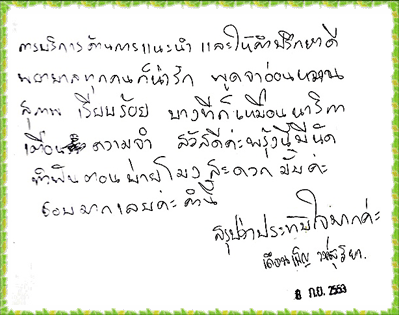 การบริการด้านการแนะนำ และให้คำปรึกษาดี
พยาบาลทุกคนก็น่ารัก พูดจาอ่อนหวาน
สุภาพ เรียบร้อย บางทีก็เหมือนนาฬิกา
เตือนความจำ สวัสดีค่ะพรุ่งนี้มีนัด
ทำฟันตอนบ่ายโมงสะดวกมั้ยค่ะ
ชอบมากเลยค่ะ คำนี้
สรุปว่าประทับใจมากค่ะ
เดือนเพ็ญ
8 ก.ย. 2553